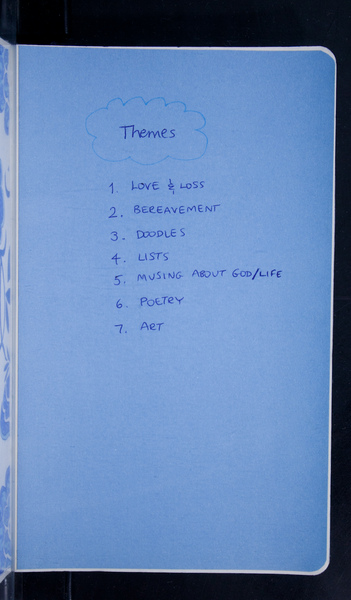 Themes
1. LOVE & LOSS
2. BEREAVEMENT
3. DOODLES
4. LISTS
5. MUSING ABOUT GOD/LIFE
6. POETRY
7. ART